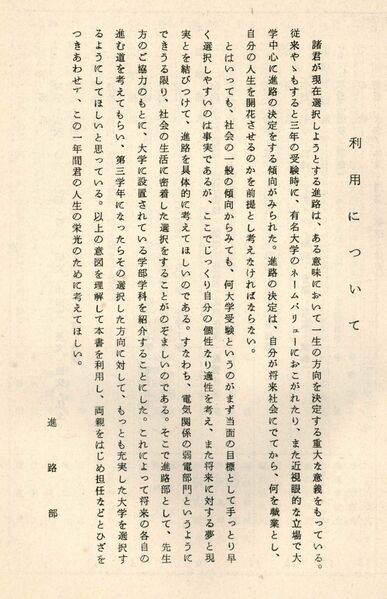 利用について
諸君が現在選択しようとする進路は、ある意味において一生の方向を決定する重大な意義をもっている。
従来やゝもすると三年の受験時に、有名大学のネームバリューにおこがれたり、また近視眼的な立場で大
学中心に進路の決定をする傾向がみられた。進路の決定は、自分が将来社会にでてから、何を職業とし、
自分の人生を開花させるのかを前提とし考えなければならない。
とはいっても、社会の一般の傾向からみても、何大学受験というのがまず当面の目標として手っとり早
く選択しやすいのは事実であるが、ここでじっくり自分の個性なり適性を考え、また将来に対する夢と現
実とを結びつけて、進路を具体的に考えてほしいのである。すなわち、電気関係の弱電部門というように
できうる限り、社会の生活に密着した選択をすることがのぞましいのである。そこで進路部として、先生
方のご協力のもとに、大学に設置されている学部学科を紹介することにした。これによって将来の各自の
進む道を考えてもらい、第三学年になったらその選択した方向に対して、もっとも充実した大学を選択す
るようにしてほしいと思っている。以上の意図を理解して本書を利用し、両親をはじめ担任などとひざを
つきあわせず、この一年間君の人生の栄光のために考えてほしい。
進路部